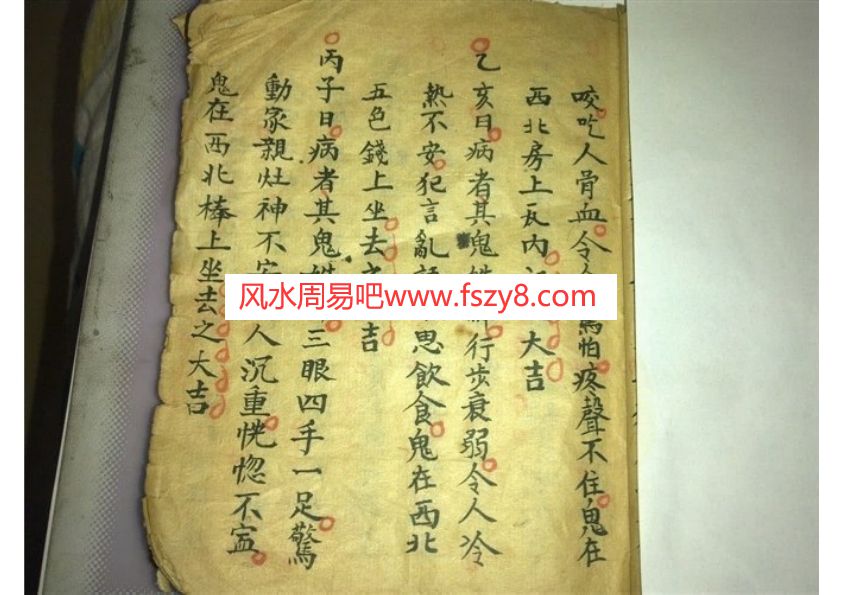 咬吃人骨血令怕疼聲不住鬼在
西北房上瓦内大吉
乙亥日病者其鬼行步衰弱令人冷
熱不安犯言亂思飲食鬼在西北
五色錢上坐去吉
丙子日病者其鬼三眼四手一足驚
動家親灶神不人沉重恍惚不寍
鬼在西北棒上坐去之大吉
风水周易吧www.fszy8.com